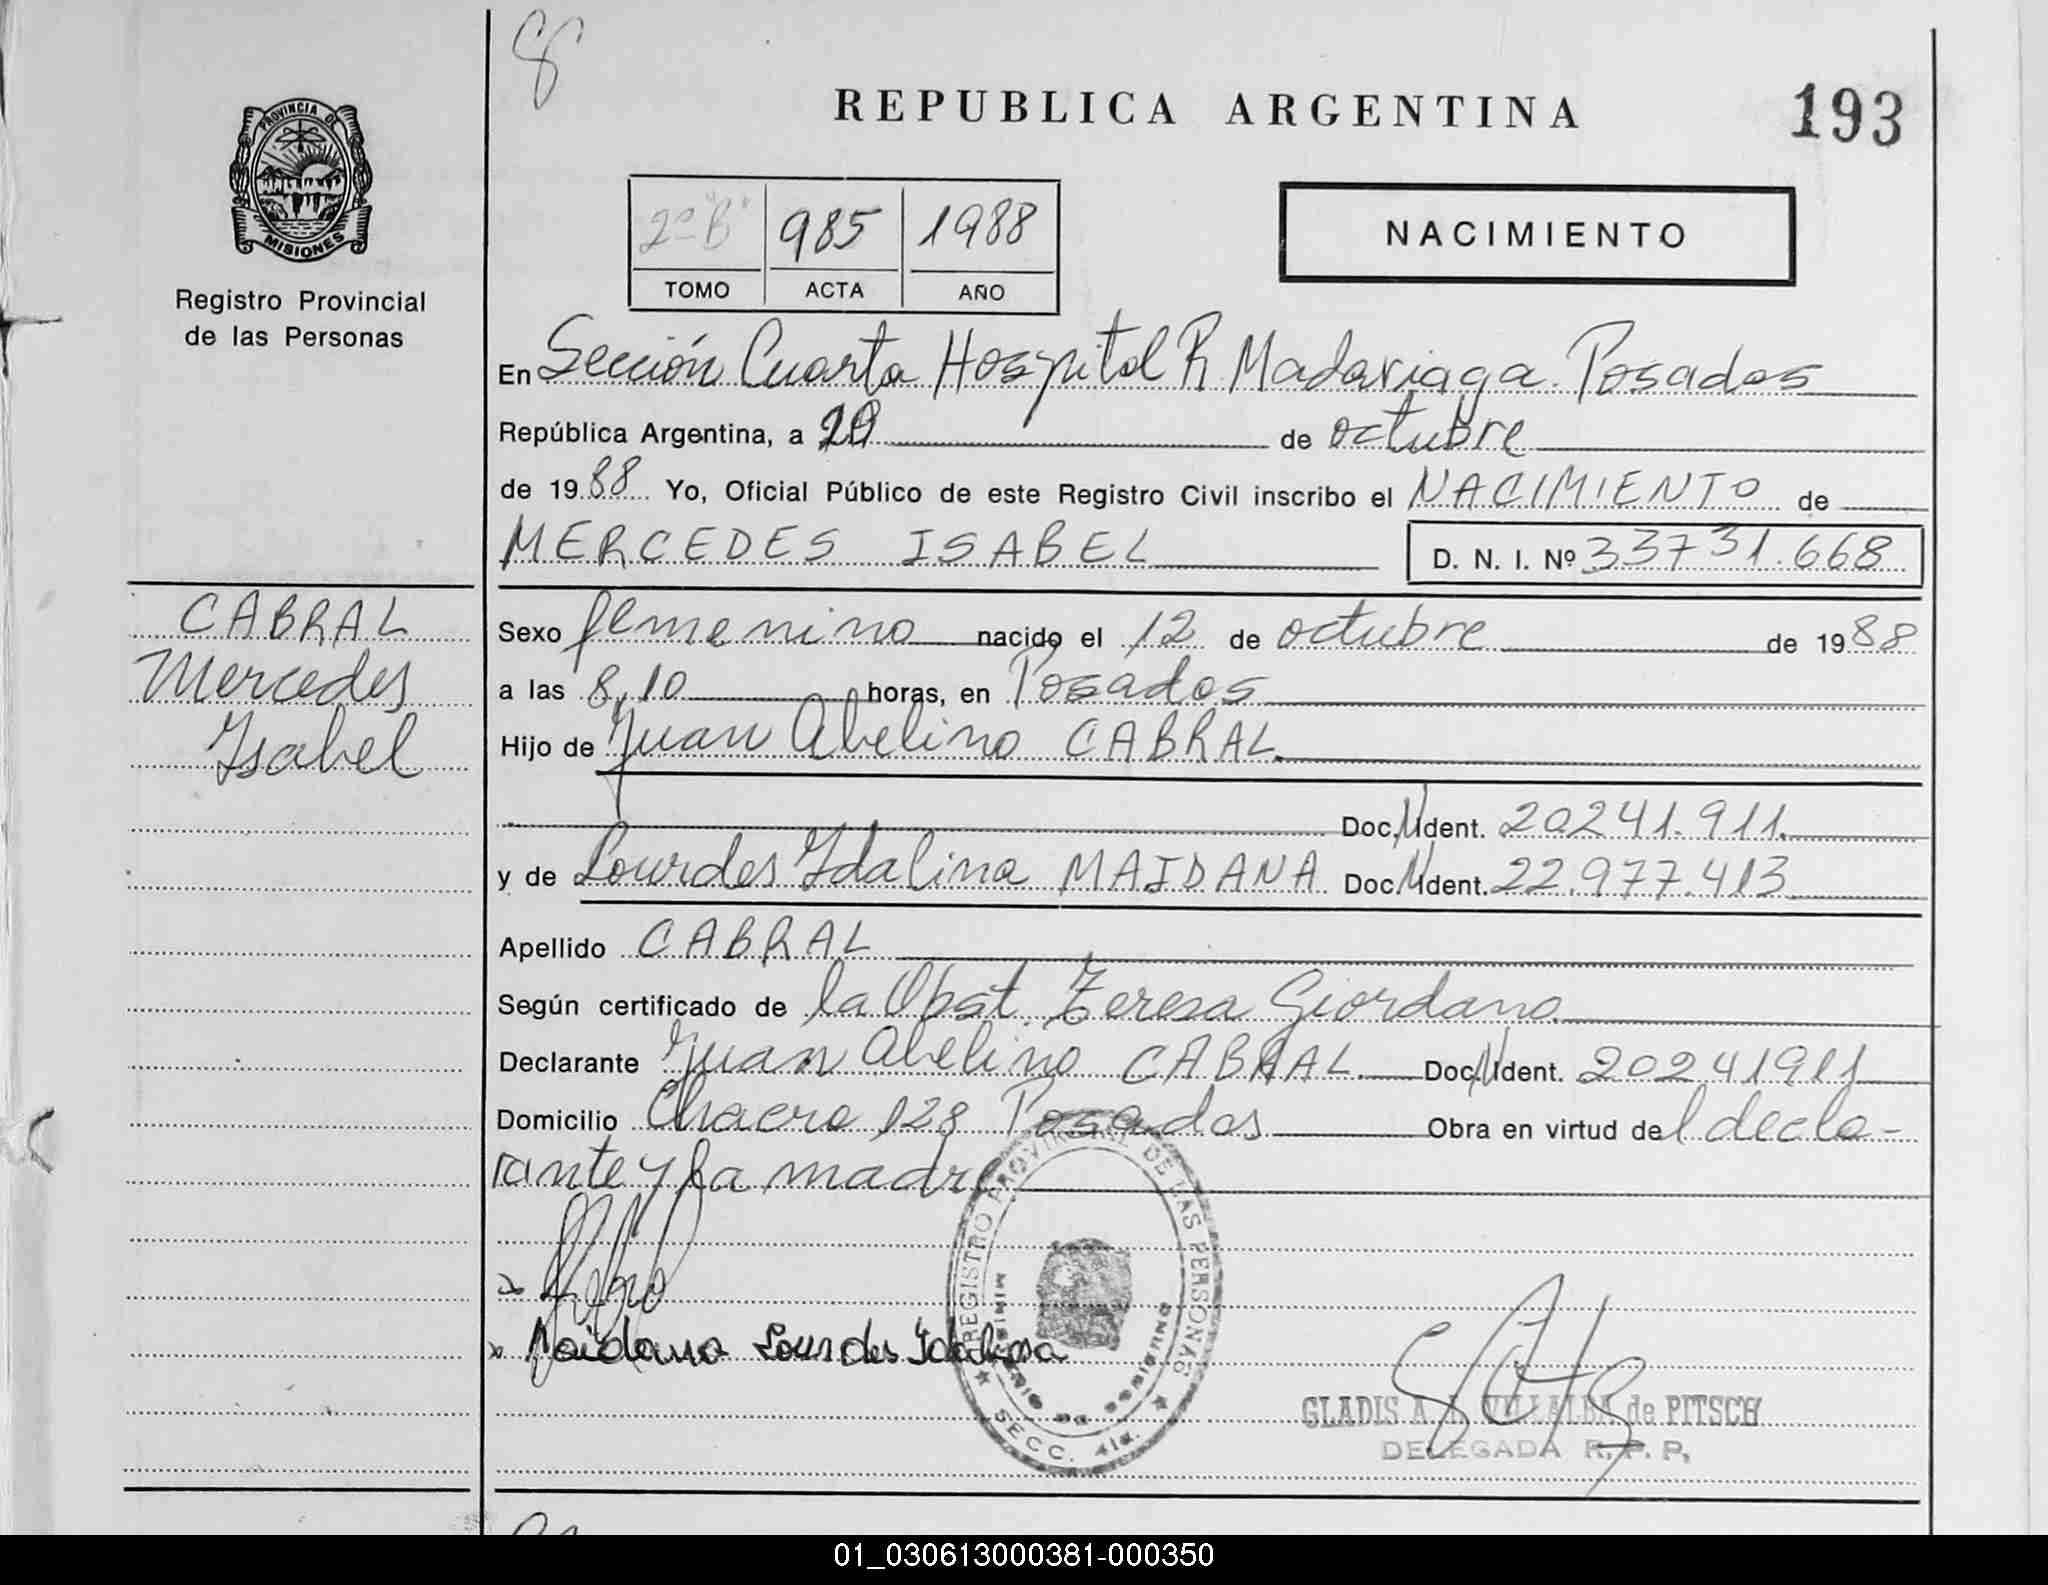 8
REPUBLICA ARGENTINA
193
PROVINCIA DE
MISIONES
Registro Provincial
de las Personas
2º "B" 985 1988
TOMO ACTA AÑO
NACIMIENTO
En Sección Cuarta Hospital R. Madariaga. Posadas
República Argentina, a de octubre
de 1988 Yo, Oficial Público de este Registro Civil inscribo el NACIMIENTO de
MERCEDES ISABEL D. N. I. Nº 33731.668
CABRAL
Mercedes
Isabel
Sexo femenino nacido el 12 de octubre de 1988
a las 8,10 horas, en Posadas
Hijo de Juan Abelino CABRAL
Doc. Ident. 20241.911
y de Lourdes Idalina MAIDANA Doc. Ident. 22.977.413
Apellido CABRAL
Según certificado de la Obst. Teresa Giordano
Declarante Juan Abelino CABRAL Doc. Ident. 20241911
Domicilio Chacra 128 Posadas Obra en virtud del decla-
rante y la madre
x
x Maidana Lourdes Idalina
REGISTRO PROVINCIAL DE LAS PERSONAS
SECC. 4ta.
GLADIS A. VILLALBA de PITSCH
DELEGADA R. P. P.
01_030613000381-000350